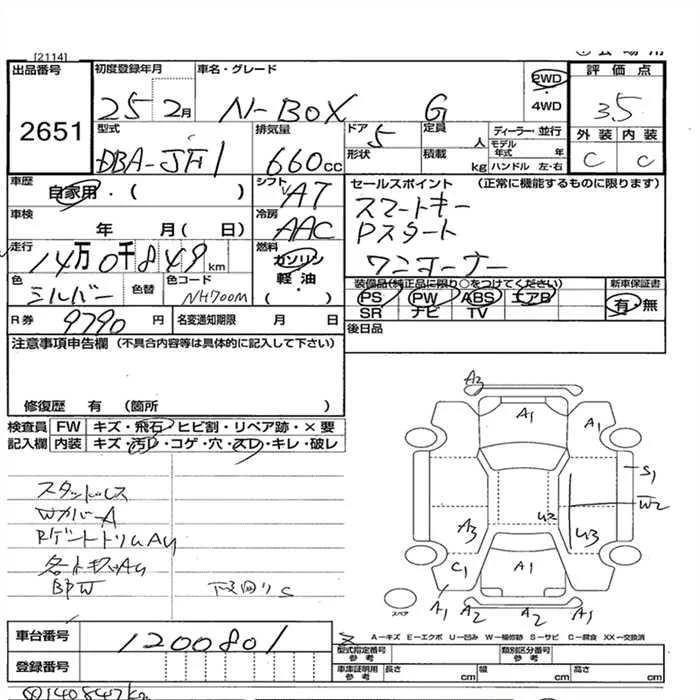 [2114]
出品番号
2651
初度登録年月
25 2月
車名・グレード
N-BOX G
2WD
・
4WD
評価点
3.5
外装 内装
C C
型式
DBA-JF1
排気量
660cc
ドア
5
形状
定員
人
積載
kg
ディーラー・並行
モデル年式 年
ハンドル 左・右
車歴
自家用・( )
シフト
AT
セールスポイント (正常に機能するものに限ります)
スマートキー
Pスタート
ワンオーナー
車検
年 月( 日)
冷房
AAC
走行
14万0千849km
燃料
ガソリン
軽油・
( )
色
シルバー
色替
色コード
NH700M
装備品(純正品に限り○をつけてください)
PS PW ABS エアB
SR ナビ TV
新車保証書
有・無
R券 9790円
名変通知期限 月 日
後日品
注意事項申告欄 (不具合内容等は具体的に記入して下さい)
修復歴 有 (箇所 )
検査員 FW キズ・飛石・ヒビ割・リペア跡・×要
記入欄 内装 キズ・汚レ・コゲ・穴・スレ・キレ・破レ
スタッドレス
WカバーA
下回りS
A2
A1
A1
S1
W2
A3
U2
U3
C1
A1
A1 A2 A2 A1
スペア
車台番号
1200801
登録番号
A-キズ E-エクボ U-凹み W-補修跡 S-サビ C-腐食 XX-交換済
型式指定番号
参考
類別区分番号
参考
車庫証明用
参考
長さ cm 幅 cm 高さ cm
140847km